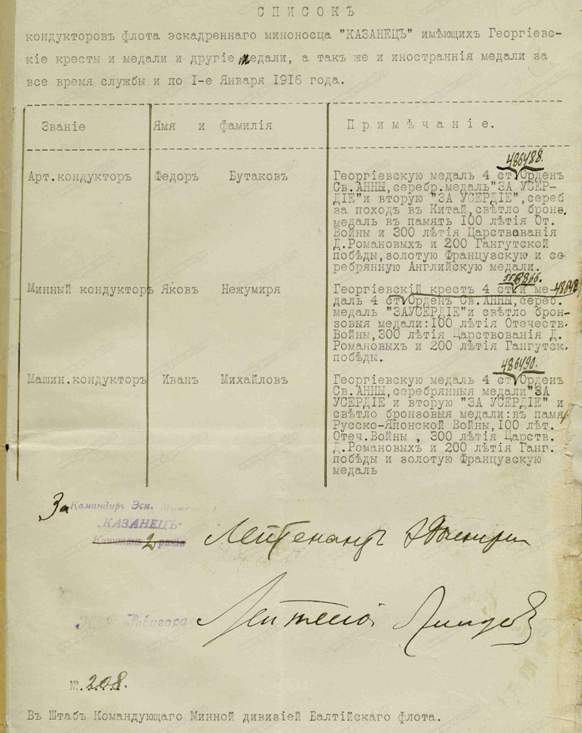 СПИСОКЪ
кондукторовъ флота эскадреннаго миноносца "КАЗАНЕЦЪ" имѣющихъ Георгіевс-
кіе кресты и медали и другіе медали, а такъ же и иностраннія медали за
все время службы и по 1-е Января 1916 года.
Званіе Имя и фамилія Примѣчаніе.
486488.
Арт.кондукторъ Федоръ Бутаковъ Георгіевскую медаль 4 ст Орденъ
Св.АННЫ, серебр.медаль "ЗА УСЕР-
ДІЕ" и вторую "ЗА УСЕРДІЕ", сереб
за походъ въ Китай, свѣтло броне.
медаль въ память 100 лѣтія От.
Войны и 300 лѣтія Царствованія
Д.Романовыхъ и 200 Гангутской
побѣды, золотую Французскую и се-
ребрянную Англійскую медали.
Минный кондукторъ Яковъ Нежумиря Георгіевскій крестъ 4 ст и ме-
даль 4 ст Орденъ Св.АННЫ, сереб.
медаль "ЗАУСЕРДІЕ" и свѣтло брон-
зовыя медали: 100 лѣтія Отечеств.
Войны, 300 лѣтія Царствованія Д.
Романовыхъ и 200 лѣтія Гангутск.
побѣды.
486490.
Машин.кондукторъ Иванъ Михайловъ Георгіевскую медаль 4 ст Орденъ
Св.АННЫ, серебрянныя медали "ЗА
УСЕРДІЕ и вторую "ЗА УСЕРДІЕ" и
свѣтло бронзовыя медали: въ памя
Русско-Японской Войны, 100 лѣт.
Отеч.Войны, 300 лѣтія Царств.
Д.Романовыхъ и 200 лѣтія Ганг.
побѣды и золотую Французскую
медаль
За Командиръ Эск.
"КАЗАНЕЦЪ"
2 ранга Лейтенантъ
Лейтенантъ
№ 208.
Въ Штабъ Командующаго Минной дивизіей Балтійскаго флота.